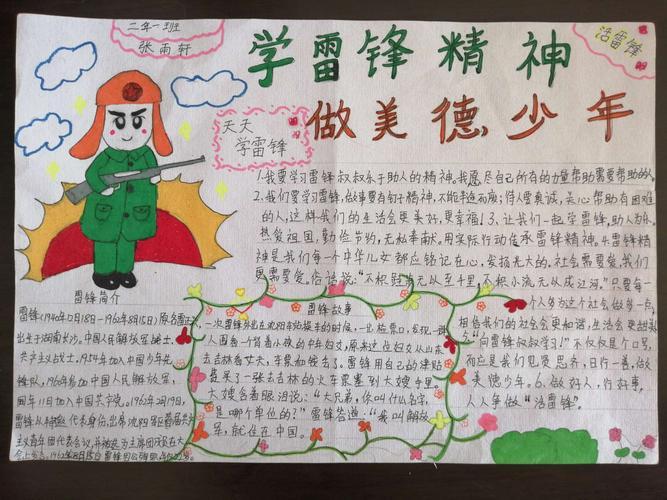 二年一班
张雨轩
学雷锋精神
做美德少年
活雷锋
天天
学雷锋
1、我要学习雷锋叔叔乐于助人的精神,我愿尽自己所有的力量帮助需要帮助的人
2、我们要学习雷锋,做事要有钉子精神,不能半途而废;待人要真诚,关心帮助有困难
的人,这样我们的生活会更美好,更幸福!3、让我们一起学雷锋,助人为乐,
热爱祖国,勤俭节约,无私奉献。用实际行动传承雷锋精神。4、雷锋精
神是我们每一个中华儿女都应铭记在心,发扬光大的。社会需要爱,我们
更需要爱。俗话说:“不积跬步无以至千里,不积小流无以成江河。”只要每一
个人多为这个社会做多一点,
相信我们的社会会更和谐,生活会更甜美
“向雷锋叔叔学习!”不仅仅是个口号,
而应是我们见贤思齐,日行一善,做
美德少年。6、做好人,行好事,
人人争做“活雷锋”。
雷锋简介
雷锋(1940年12月18日-1962年8月15日)原名雷正兴
出生于湖南长沙,中国人民解放军战士,
共产主义战士。1954年加入中国少年先
锋队,1960年参加中国人民解放军,
同年11月加入中国共产党。1962年2月19日,
雷锋以特邀代表身份,出席沈阳军区首届共产
主义青年团代表会议,并被选为主席团成员在大
会上发言。1962年8月15日雷锋因公殉职
雷锋故事
一次雷锋外出在沈阳车站换车的时候,一出检票口,发现一群
人围看一个背着小孩的中年妇女,原来这位妇女从山东
去吉林看丈夫,车票和钱丢了。雷锋用自己的津贴
费买了一张去吉林的火车票塞到大嫂手里,
大嫂含着眼泪说:“大兄弟,你叫什么名字,
是哪个单位的?”雷锋答道:“我叫解放
军,就住在中国。